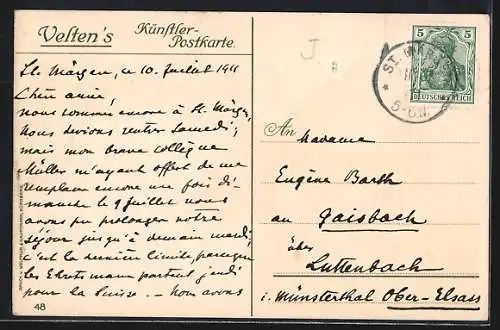 Velten's Künstler-
Postkarte.
J
St. Märgen, ce 10 Juillet 1911
Chère amie,
nous sommes encore à St. Märgen,
Nous devions rentrer samedi;
mais mon brave collègue
Müller m'ayant offert de me
remplacer encore une fois di-
manche le 9 juillet nous
avons pu prolonger notre
séjour jusqu'à demain mardi,
c'est la dernière limite, parceque
les Ehretsmann partent jeudi
pour la Suisse. – Nous avons
48
5 5
DEUTSCHES REICH
ST. MÄRGEN
An
Madame
Eugène Barth
au Gaisbach
über
Luttenbach
i. Münsterthal Ober-Elsass